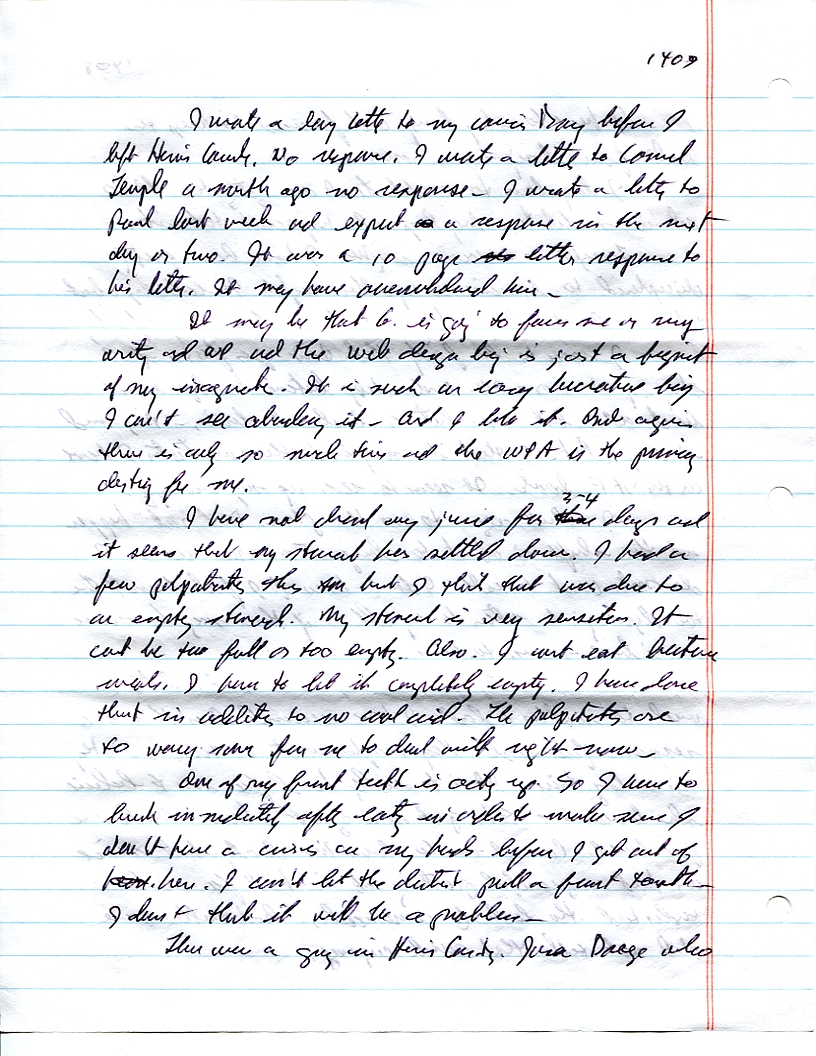 1409
I wrote a long letter to my cousin before I
left Harris County. No response. I wrote a letter to
Temple a month ago no response - I wrote a letter to
Paul last week and expect a response in the next
day or two. It was a 10 page letter response to
his letter. It may have overwhelmed him -
It may be that G. is going to focus me on my
writing and art and the web design biz is just a
of my. It is such an easy lucrative biz
I can't see abandoning it - and I like it. But again
there is only so much time and the WPA is the primary
destiny for me.
I have not drank any juice for 3-4 days and
it seems that my stomach has settled down. I had a
few palpitations this am but I think that was due to
an empty stomach. My stomach is very sensitive. It
can't be too full or too empty. Also. I can't eat between
meals. I have to let it completely empty. I have done
that in addition to no cool aid. The palpitations are
to worry some for me to deal with right now -
One of my front teeth is acting up. So I have to
brush immediately after eating in order to make sure I
don't have a crisis on my hands before I get out of
here. I can't let the dentist pull a front tooth -
I don't think it will be a problem -
There was a guy in Harris County. who